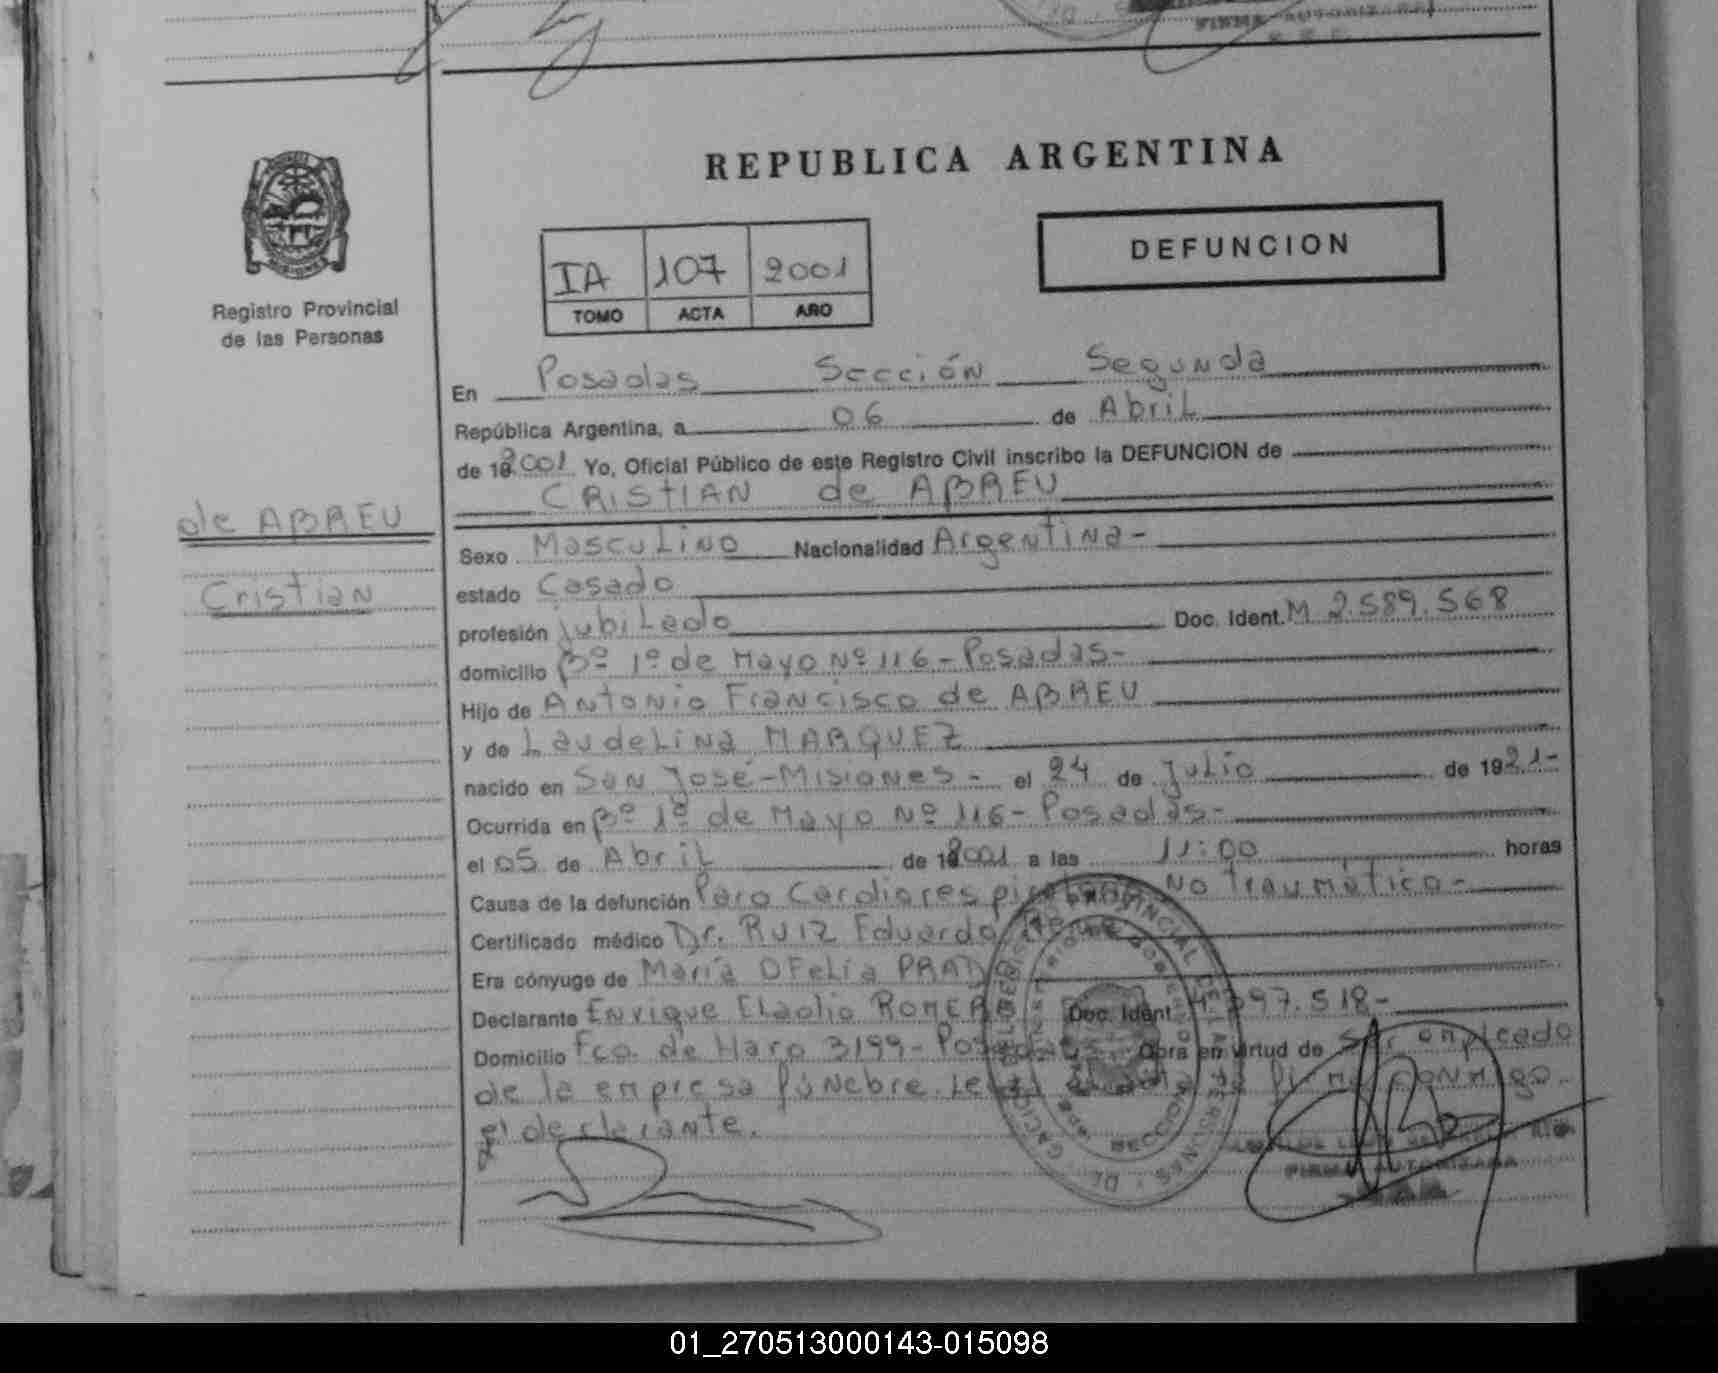 FIRMA AUTORIZADA
REPUBLICA ARGENTINA
DEFUNCION
IA 107 2001
TOMO ACTA AÑO
MISIONES
Registro Provincial
de las Personas
En Posadas Sección Segunda
República Argentina, a 06 de Abril
de 2001 Yo, Oficial Público de este Registro Civil inscribo la DEFUNCION de
CRISTIAN de ABREU
de ABREU
Cristian
Sexo Masculino Nacionalidad Argentina-
estado Casado
profesión jubilado Doc. Ident. M 2.589.568
domicilio Bº 1º de Mayo Nº 116-Posadas-
Hijo de Antonio Francisco de ABREU
y de Laudelina MARQUEZ
nacido en San José-Misiones- el 24 de Julio de 1921-
Ocurrida en Bº 1º de Mayo Nº 116-Posadas-
el 05 de Abril de 2001 a las 11:00 horas
Causa de la defunción Paro Cardiorespiratorio No Traumático-
Certificado médico Dr. RUIZ Eduardo
Era cónyuge de María Ofelia PRAD
Declarante Enrique Eladio ROMERO Doc. Ident. 397.518-
Domicilio Fco. de Haro 3199-Posadas Obra en virtud de ser empleado
de la empresa fúnebre. Leída firma conmigo
el declarante.
FIRMA AUTORIZADA
01_270513000143-015098